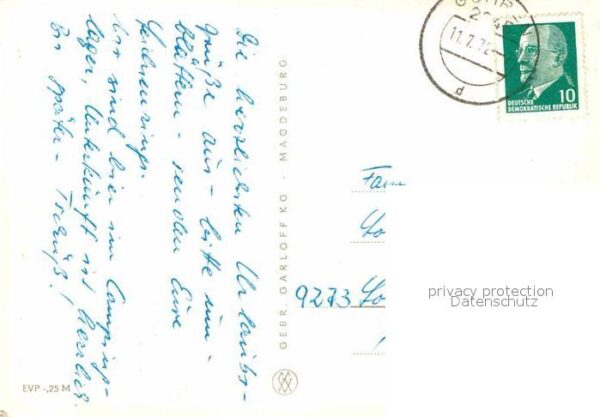 Die herzlichsten Urlaubs-
grüße aus - bitte um-
blättern - senden Eure
Wir sind hier im Camping-
lager, Unterkunft ist herrlich.
Bis später - Tschüß!
GEBR. GARLOFF KG · MAGDEBURG
EVP -,25 M
11.7.72
10
DEUTSCHE
DEMOKRATISCHE REPUBLIK
Fam
9273
privacy protection
Datenschutz